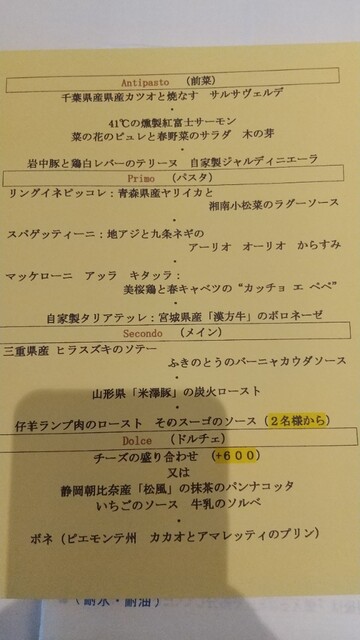 Antipasto （前菜）
千葉県産県産カツオと焼なす サルサヴェルデ
・
41℃の燻製紅富士サーモン
菜の花のピュレと春野菜のサラダ 木の芽
・
岩中豚と鶏白レバーのテリーヌ 自家製ジャルディニエーラ
Primo （パスタ）
リングイネピッコレ：青森県産ヤリイカと
湘南小松菜のラグーソース
・
スパゲッティーニ：地アジと九条ネギの
アーリオ オーリオ からすみ
・
マッケローニ アッラ キタッラ：
美桜鶏と春キャベツの“カッチョ エ ペペ”
・
自家製タリアテッレ：宮城県産「漢方牛」のボロネーゼ
Secondo （メイン）
三重県産 ヒラスズキのソテー
ふきのとうのバーニャカウダソース
・
山形県「米澤豚」の炭火ロースト
・
仔羊ランプ肉のロースト そのスーゴのソース（２名様から）
Dolce （ドルチェ）
チーズの盛り合わせ （+６００）
又は
静岡朝比奈産「松風」の抹茶のパンナコッタ
いちごのソース 牛乳のソルベ
・
ボネ（ピエモンテ州 カカオとアマレッティのプリン）
（耐水・耐油）